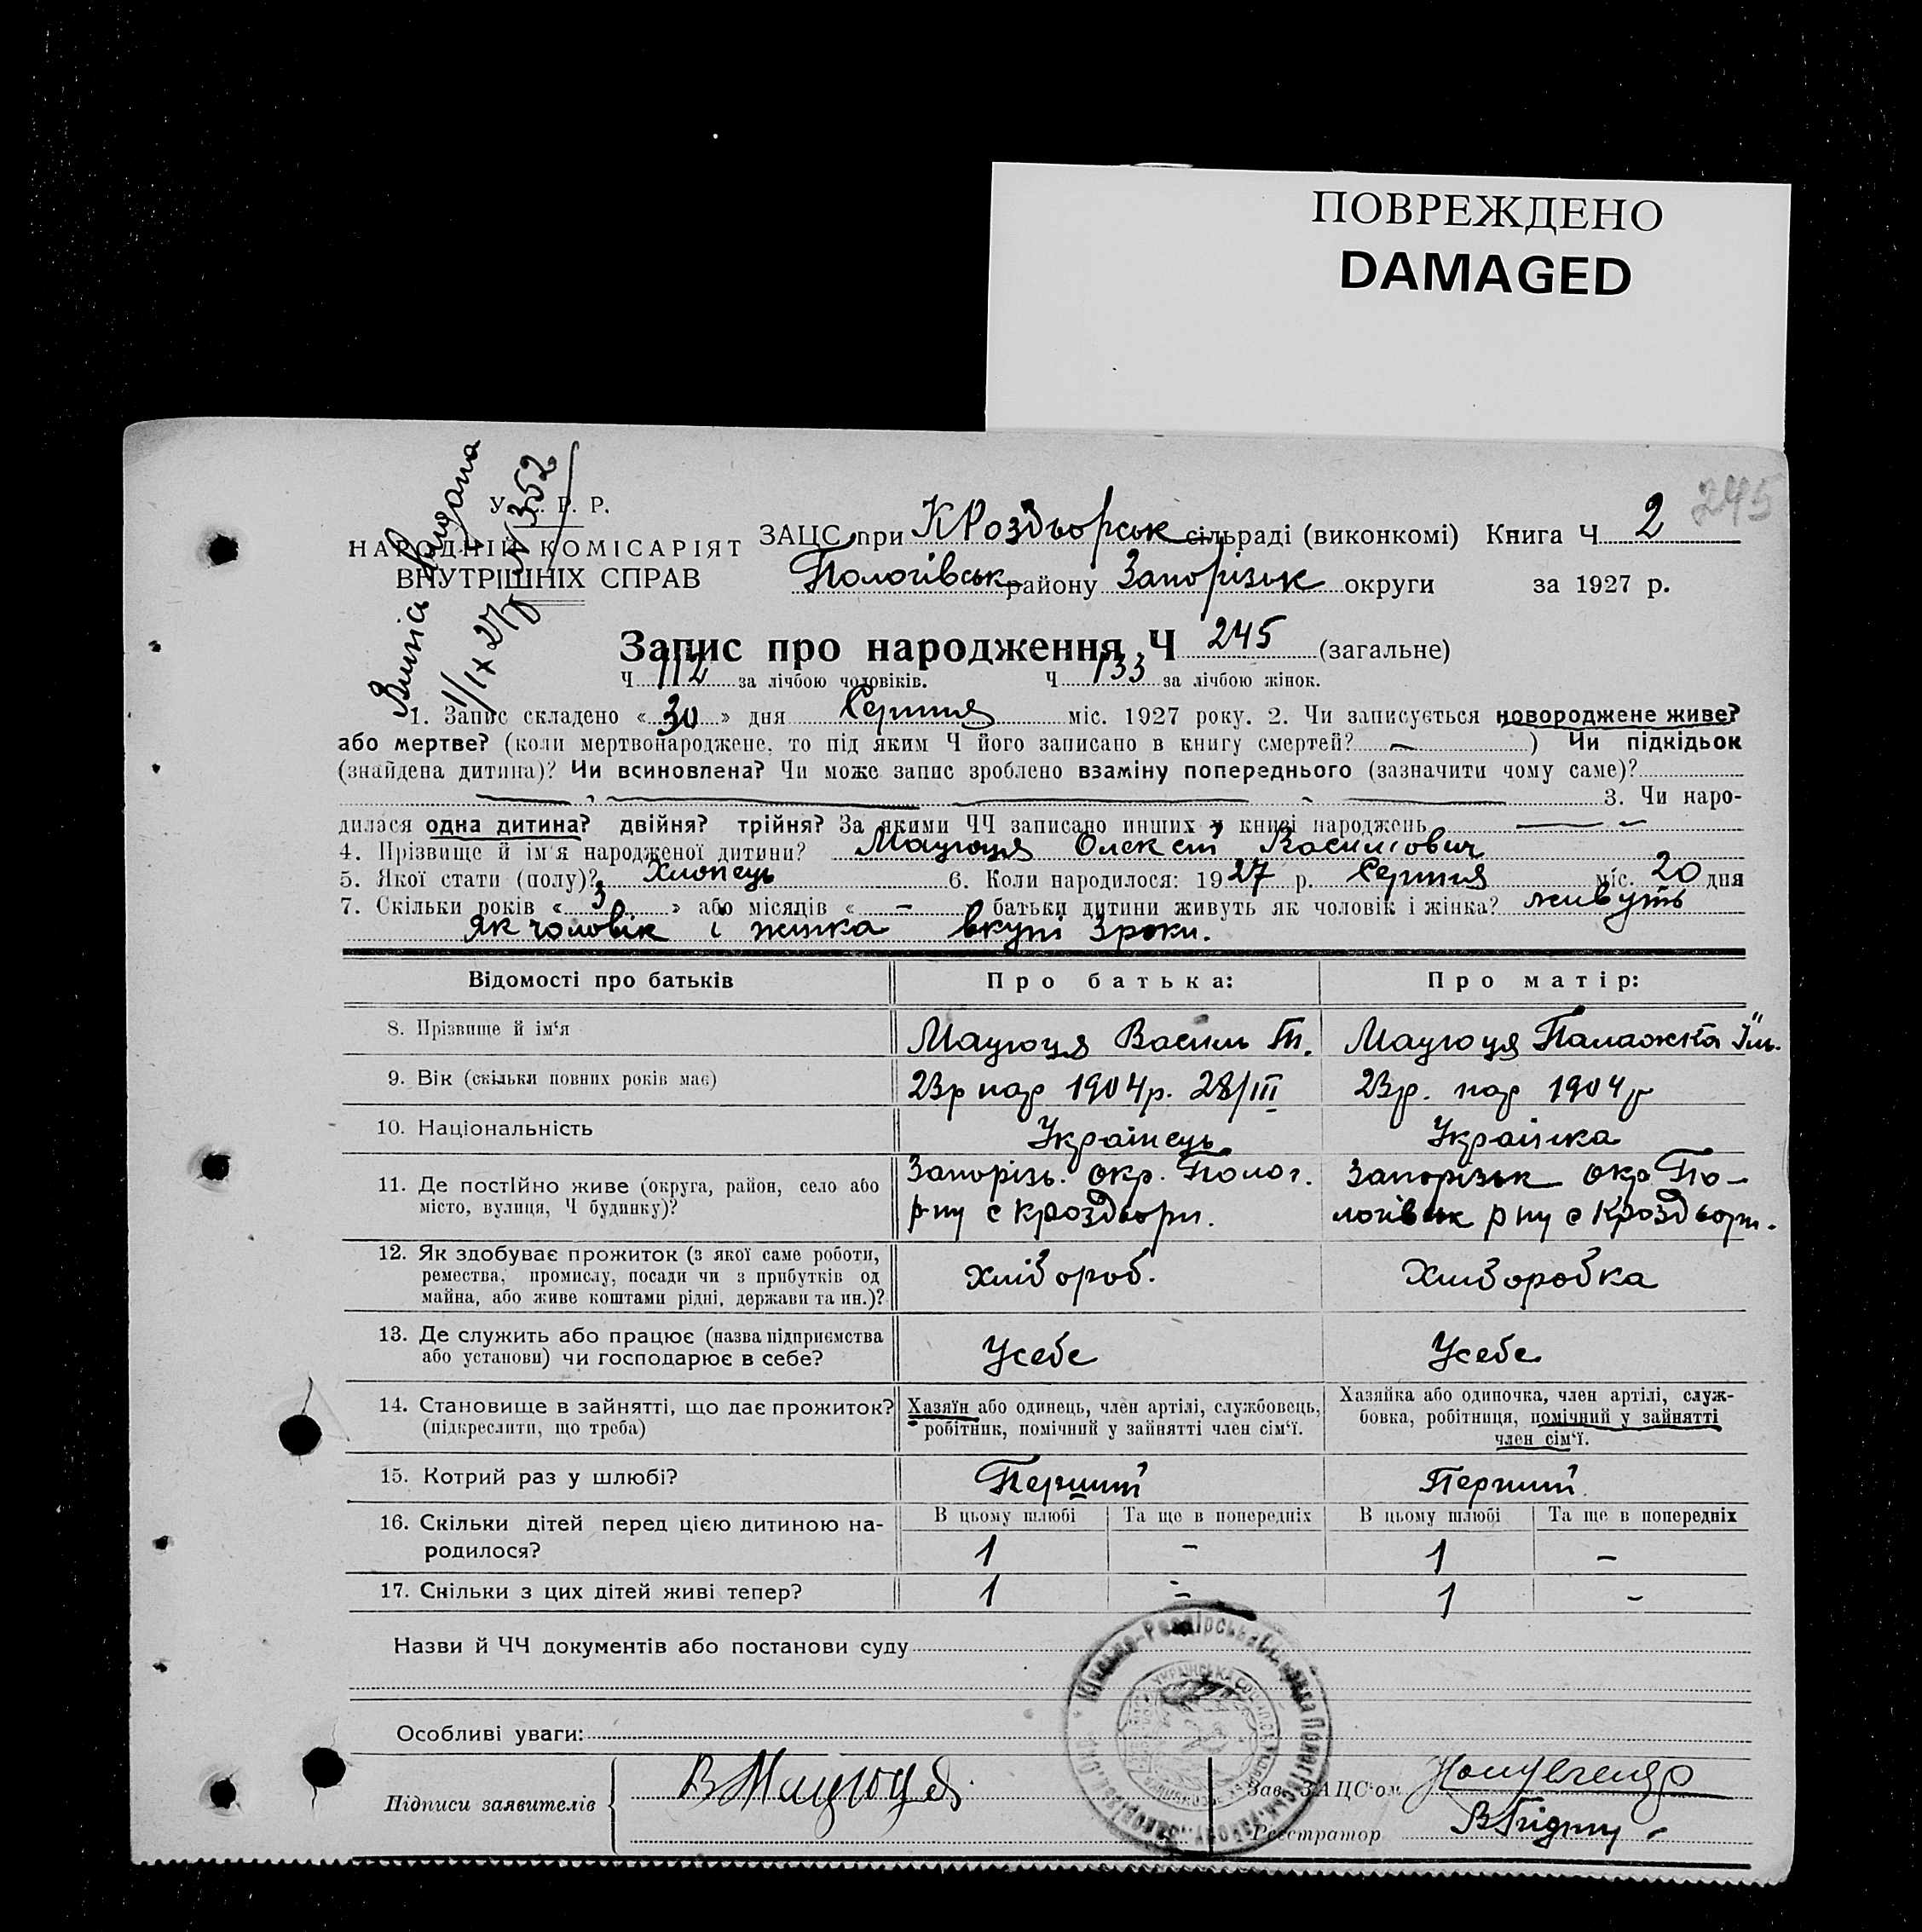 ПОВРЕЖДЕНО
DAMAGED
245
У. Р. Р.
НАРОДНІЙ КОМІСАРІЯТ
ВНУТРІШНІХ СПРАВ
N 352
ЗАЦС при К Роздьорськ сільраді (виконкомі) Книга Ч 2
Пологівськ району Запорізьк округи за 1927 р.
Запис про народження Ч 245 (загальне)
Ч 112 за лічбою чоловіків. Ч 133 за лічбою жінок.
1. Запис складено « 30 » дня Серпня міс. 1927 року. 2. Чи записується новороджене живе?
або мертве? (коли мертвонароджене, то під яким Ч його записано в книгу смертей? — ) Чи підкідьок
(знайдена дитина)? Чи всиновлена? Чи може запис зроблено взаміну попереднього (зазначити чому саме)?
3. Чи наро-
дилася одна дитина? двійня? трійня? За якими ЧЧ записано инших у книзі народжень —
4. Прізвище й ім'я народженої дитини? Мацюця Олексій Васильович
5. Якої стати (полу)? Хлопець 6. Коли народилося: 1927 р. Серпня міс. 20 дня
7. Скільки років « 3 » або місяців « – батьки дитини живуть як чоловік і жінка? живуть
як чоловік і жінка вкупі 3 роки.
Відомості про батьків Про батька: Про матір:
8. Прізвище й ім'я Мацюця Василь Т. Мацюця Палажка Їль.
9. Вік (скільки повних років має) 23р нар 1904р. 28/III 23р. нар 1904р
10. Національність Українець Українка
11. Де постійно живе (округа, район, село або Запорізь. окр. Полог. Запорізьк окр По-
місто, вулиця, Ч будинку)? р ну с Кроздьорн. логівськ р ну с Кроздьорн.
12. Як здобуває прожиток (з якої саме роботи,
ремества, промислу, посади чи з прибутків од Хлібороб. Хліборобка
майна, або живе коштами рідні, держави та ин.)?
13. Де служить або працює (назва підприємства Усебе Усебе
або установи) чи господарює в себе?
14. Становище в зайнятті, що дає прожиток? Хазяїн або одинець, член артілі, службовець, Хазяйка або одиночка, член артілі, служ-
(підкреслити, що треба) робітник, помічний у зайнятті член сім'ї. бовка, робітниця, помічний у зайнятті
член сім'ї.
15. Котрий раз у шлюбі? Перший Перший
16. Скільки дітей перед цією дитиною на- В цьому шлюбі Та ще в попередніх В цьому шлюбі Та ще в попередніх
родилося? 1 – 1 –
17. Скільки з цих дітей живі тепер? 1 – 1 –
Назви й ЧЧ документів або постанови суду
Особливі уваги:
Підписи заявителів В Мацюця Зав. ЗАЦС'ом
Реєстратор